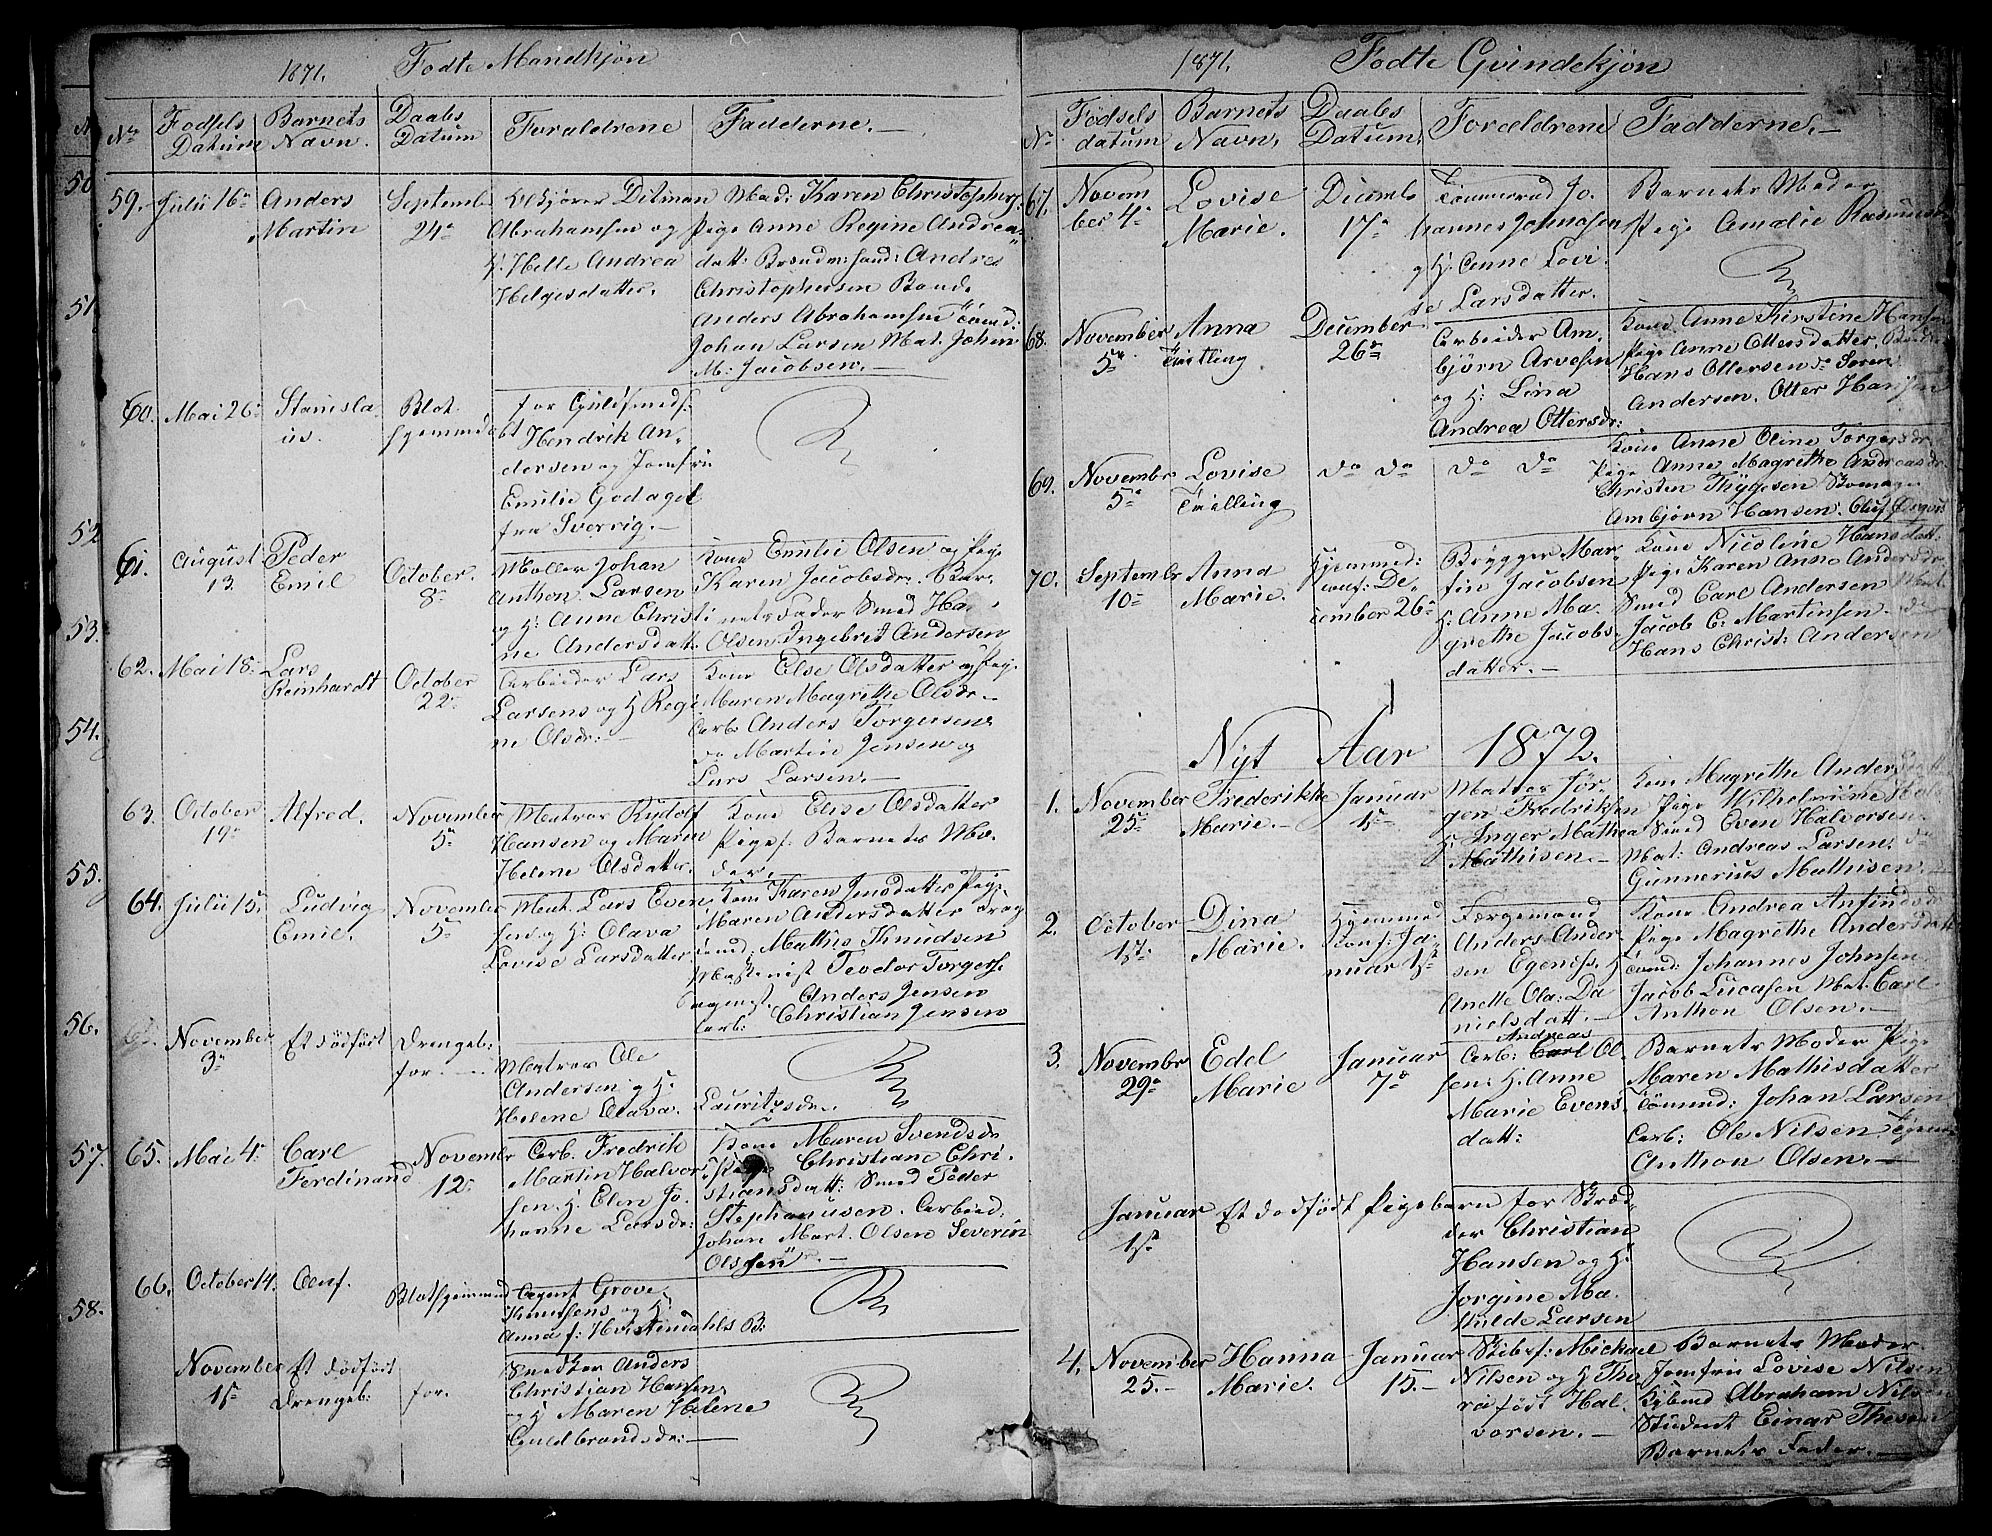 1871. Fødte Mandkjøn
No Fødsels Datum Barnets Navn. Daabs Datum Foraldrene Fadderne.
59. Julii 16de Anders Martin September 24de
Ditman Abrahamsen og H. Helle Andrea Helgesdatter.
Mad: Karen Christophers.
Pige Anne Regine Andrea
datt: Brandm: Andrea
Christophersen Bande
Anders Abrahamsen Tømd:
Johan Larsen Mat. Johan
M. Jacobsen.
60. Mai 26 Stanislaus. Blot hjemmedøbt
for Guldsmeds. Hendrik Andersen og Jomfru Emilie Godagel fra Sverrig.
61. August 13 Peder Emil October 8de
Møller Johan Anthon Larsen og H: Anne Christine Andersdatt.
Kone Emilie Olsen og Pige
Karen Jacobsdr. Bar-
nets fader Smed
Olsen, Ingebret Andersen
62. Mai 18 Lars Reinhardt October 22de
Arbeider Lars Larsens og H Regine Olsdr:
Kone Else Olsdatter og Pig.
Maren Magrethe Olsdr.
Arb. Anders Torgersen
Martin Jensen og
Lars Larsen.
63. October 19de Alfred. November 5de
Matros Rudolf Hansen og Maren Helene Olsdatter.
Kone Elise Olsdatter
Pigef. Barnets Mo-
der.
64. Julii 15. Ludvig Emil. November 5de
Mat. Lars Evensen og H: Olava Lovise Larsdatter
Kone Karen Jensdatter Pige
Maren Andersdatter
Mathis Knudsen
Teodor Torgers.
Anders Jensen
Arb: Christian Jensen
November 3de Et dødfødt Drengeb: for
Matros Ole Andersen og H. Helene Olava. Lauritzdr.
65. Mai 4. Carl Ferdinand November 12de
Arb. Fredrik Martin Halvorsen. H. Elen Johanne Larsdr:
Kone Maren Svendsdr
Pige Christiane Chri-
stiansdatt: Smed Peder
Stephansen. Arbeid.
Johan Mart. Olsen Severin
Olssen
66. October 14. Oluf. Blothjemmed
Agent Grove Knutsens og H. Anna f: Hvistendahls B.
November 1ste Et dødfødt Drengeb: for.
Snedker Anders Christian Hansen og H Maren Helene Guldbrandsdr:
50
51
52
53.
54.
55.
56.
57.
58.
1871. Fødte Qvindekjøn
No Fødsels datum Barnets Navn. Daabs Datum. Forældrene Fadderne.
67. November 4de Lovise Marie. Decemb 17de
Tømmermd Johannes Johnasen og H. Anne Lovise Larsdatter.
Barnets Moder
Pige Amalie Rasmus
68. November 5te Anna Tvilling December 26de
Arbeider Ambjørn Arvesen og H: Lina Andrea Ottersdr:
Kone Anne Kirstine Hansen
Pige Anne Ottersdatter.
Hans Ottersen do Søren
Andersen. Otter Hansen
69. Novembr 5te Lovise Tvilling do do do do
Kone Anne Oline Torgersdr
Pige Anne Magrethe Andreasdr.
Christen Thygesen
Ambjørn Hansen. Oluf
70. Septembr 10de Anna Marie. Hjemmed: conf: December 26de
Brygger Martin Jacobsen H: Anne Magrethe Jacobsdatter.
Kone Nicoline Hansdatt.
Pige Karen Anna Andersdr.
Smed Carl Andersen Mat.
Jacob C. Martinsen. do
Hans Christ: Andersen
Nyt Aar 1872.
1. November 25de Frederikke Marie. Januar 1ste
Matros Jørgen Fredriksen H. Inger Mathea Mathisen.
Kone Magrethe Andersdatt
Pige Wilhelmine
Smed Even Halvorsen.
Mat: Andreas Larsen. do
Gunnerius Mathisen.
2. October 17de Dina Marie. Hjemmed conf: Januar 1ste
Færgemand Anders Andersen Egeniss. H Anette Ola: Danielsdatt.
Kone Andrea Anfindsdr
Pige Magrethe Andersdatt
Tømd: Johannes Johnsen
Jacob Lucasen Mat. Carl
Anthon Olsen.
3. Novembr 29de Edel Marie Januar 7de
Arb: Andreas Carl Olsen. H. Anne Marie Evensdatt:
Barnets Moder Pige
Maren Mathisdatter
Tømmd: Johan Larsen
Arb: Ole Nilsen
Anthon Olsen.
Januar 1ste Et dødfødt Pigebarn for Skrædder Christian Hansen og H: Jorgine Mathilde Larsen
4. November 25. Hanna Marie. Januar 15.
Skibsf: Mickael Nilsen og H Thora født Halvorsen.
Barnets Moder
Jomfru Lovise Nilsen
Abraham Nilsen
Student Einar Thesen
Barnets Fader.